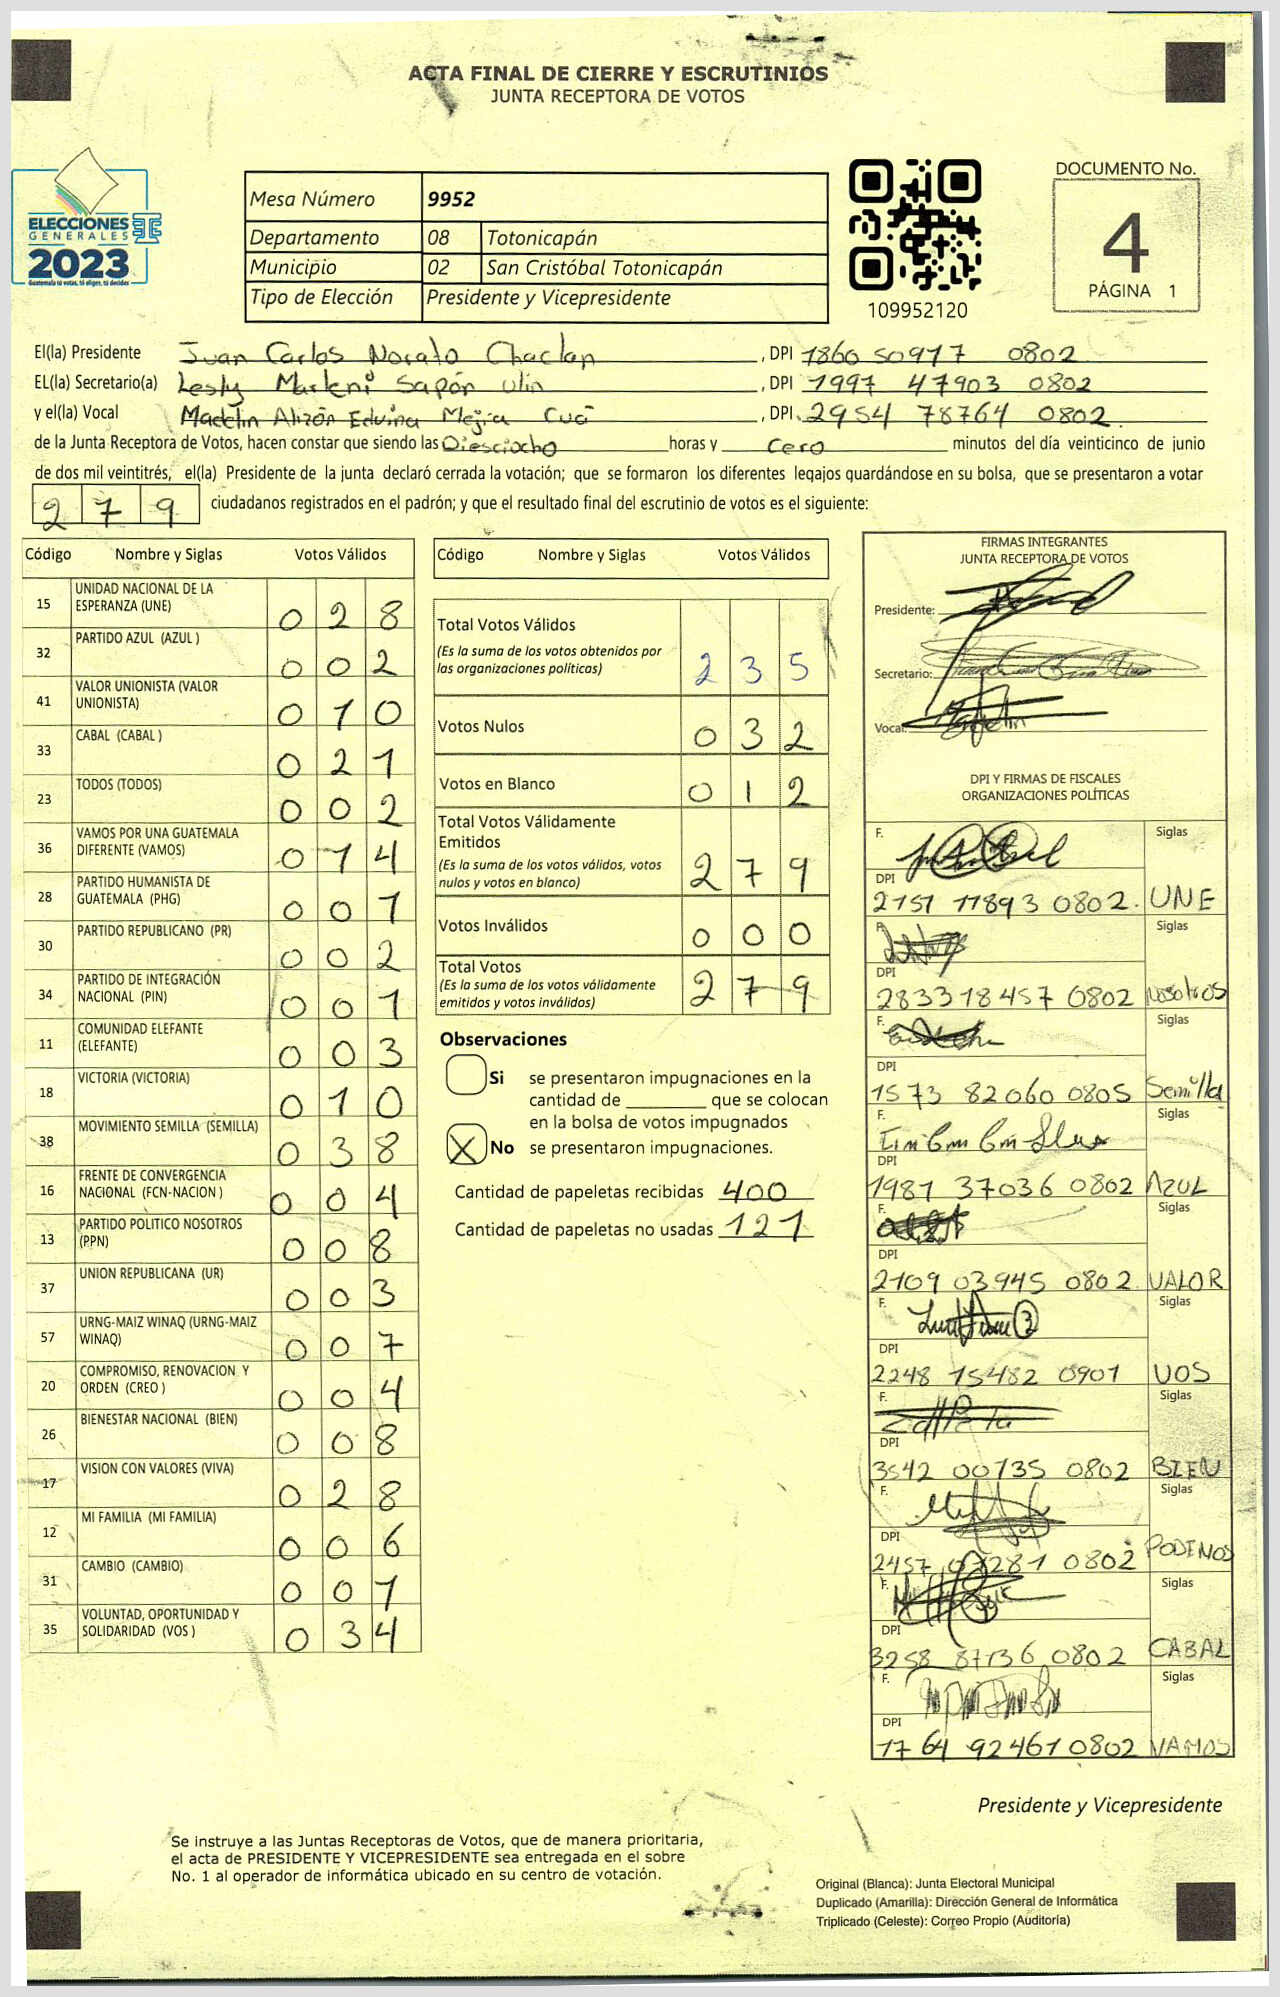 ACTA FINAL DE CIERRE Y ESCRUTINIOS
JUNTA RECEPTORA DE VOTOS
ELECCIONES
GENERALES
2023
Guatemala tú votas, tú eliges, tú decides
Mesa Número 9952
Departamento 08 Totonicapán
Municipio 02 San Cristóbal Totonicapán
Tipo de Elección Presidente y Vicepresidente
109952120
DOCUMENTO No.
4
PÁGINA 1
El(la) Presidente Juan Carlos Norato Chaclan, DPI 1860 50917 0802
EL(la) Secretario(a) Lesly Marleni Sapón Ulin, DPI 1997 47903 0802
y el(la) Vocal Madelin Alizón Edvina Mejia Cuá, DPI. 2954 78764 0802.
de la Junta Receptora de Votos, hacen constar que siendo las Diesciocho horas y cero minutos del día veinticinco de junio
de dos mil veintitrés, el(la) Presidente de la junta declaró cerrada la votación; que se formaron los diferentes legajos guardándose en su bolsa, que se presentaron a votar
279 ciudadanos registrados en el padrón; y que el resultado final del escrutinio de votos es el siguiente:
Código Nombre y Siglas Votos Válidos
15 UNIDAD NACIONAL DE LA ESPERANZA (UNE) 028
32 PARTIDO AZUL (AZUL ) 002
41 VALOR UNIONISTA (VALOR UNIONISTA) 010
33 CABAL (CABAL ) 021
23 TODOS (TODOS) 002
36 VAMOS POR UNA GUATEMALA DIFERENTE (VAMOS) 014
28 PARTIDO HUMANISTA DE GUATEMALA (PHG) 001
30 PARTIDO REPUBLICANO (PR) 002
34 PARTIDO DE INTEGRACIÓN NACIONAL (PIN) 001
11 COMUNIDAD ELEFANTE (ELEFANTE) 003
18 VICTORIA (VICTORIA) 010
38 MOVIMIENTO SEMILLA (SEMILLA) 038
16 FRENTE DE CONVERGENCIA NACIONAL (FCN-NACION ) 004
13 PARTIDO POLITICO NOSOTROS (PPN) 008
37 UNION REPUBLICANA (UR) 003
57 URNG-MAIZ WINAQ (URNG-MAIZ WINAQ) 007
20 COMPROMISO, RENOVACION Y ORDEN (CREO ) 004
26 BIENESTAR NACIONAL (BIEN) 008
17 VISION CON VALORES (VIVA) 028
12 MI FAMILIA (MI FAMILIA) 006
31 CAMBIO (CAMBIO) 001
35 VOLUNTAD, OPORTUNIDAD Y SOLIDARIDAD (VOS ) 034
Código Nombre y Siglas Votos Válidos
Total Votos Válidos 235
(Es la suma de los votos obtenidos por
las organizaciones políticas)
Votos Nulos 032
Votos en Blanco 012
Total Votos Válidamente
Emitidos 279
(Es la suma de los votos válidos, votos
nulos y votos en blanco)
Votos Inválidos 000
Total Votos 279
(Es la suma de los votos válidamente
emitidos y votos inválidos)
Observaciones
Si se presentaron impugnaciones en la
cantidad de ________ que se colocan
en la bolsa de votos impugnados
X No se presentaron impugnaciones.
Cantidad de papeletas recibidas 400
Cantidad de papeletas no usadas 121
FIRMAS INTEGRANTES
JUNTA RECEPTORA DE VOTOS
Presidente:
Secretario:
Vocal:
DPI Y FIRMAS DE FISCALES
ORGANIZACIONES POLÍTICAS
F. Siglas
DPI
2151 11893 0802. UNE
F. Siglas
DPI
2833 18457 0802 Nosotros
F. Siglas
DPI
1573 82060 0805 Semilla
F. Siglas
DPI
1981 37036 0802 AZUL
F. Siglas
DPI
2109 03945 0802. VALOR
F. Siglas
DPI
2248 15482 0901 VOS
F. Siglas
DPI
3542 00735 0802 BIEN
F. Siglas
DPI
2457 07281 0802 PODEMOS
F. Siglas
DPI
3258 87136 0802 CABAL
F. Siglas
DPI
1764 92461 0802 VAMOS
Presidente y Vicepresidente
Se instruye a las Juntas Receptoras de Votos, que de manera prioritaria,
el acta de PRESIDENTE Y VICEPRESIDENTE sea entregada en el sobre
No. 1 al operador de informática ubicado en su centro de votación.
Original (Blanca): Junta Electoral Municipal
Duplicado (Amarilla): Dirección General de Informática
Triplicado (Celeste): Correo Propio (Auditoría)